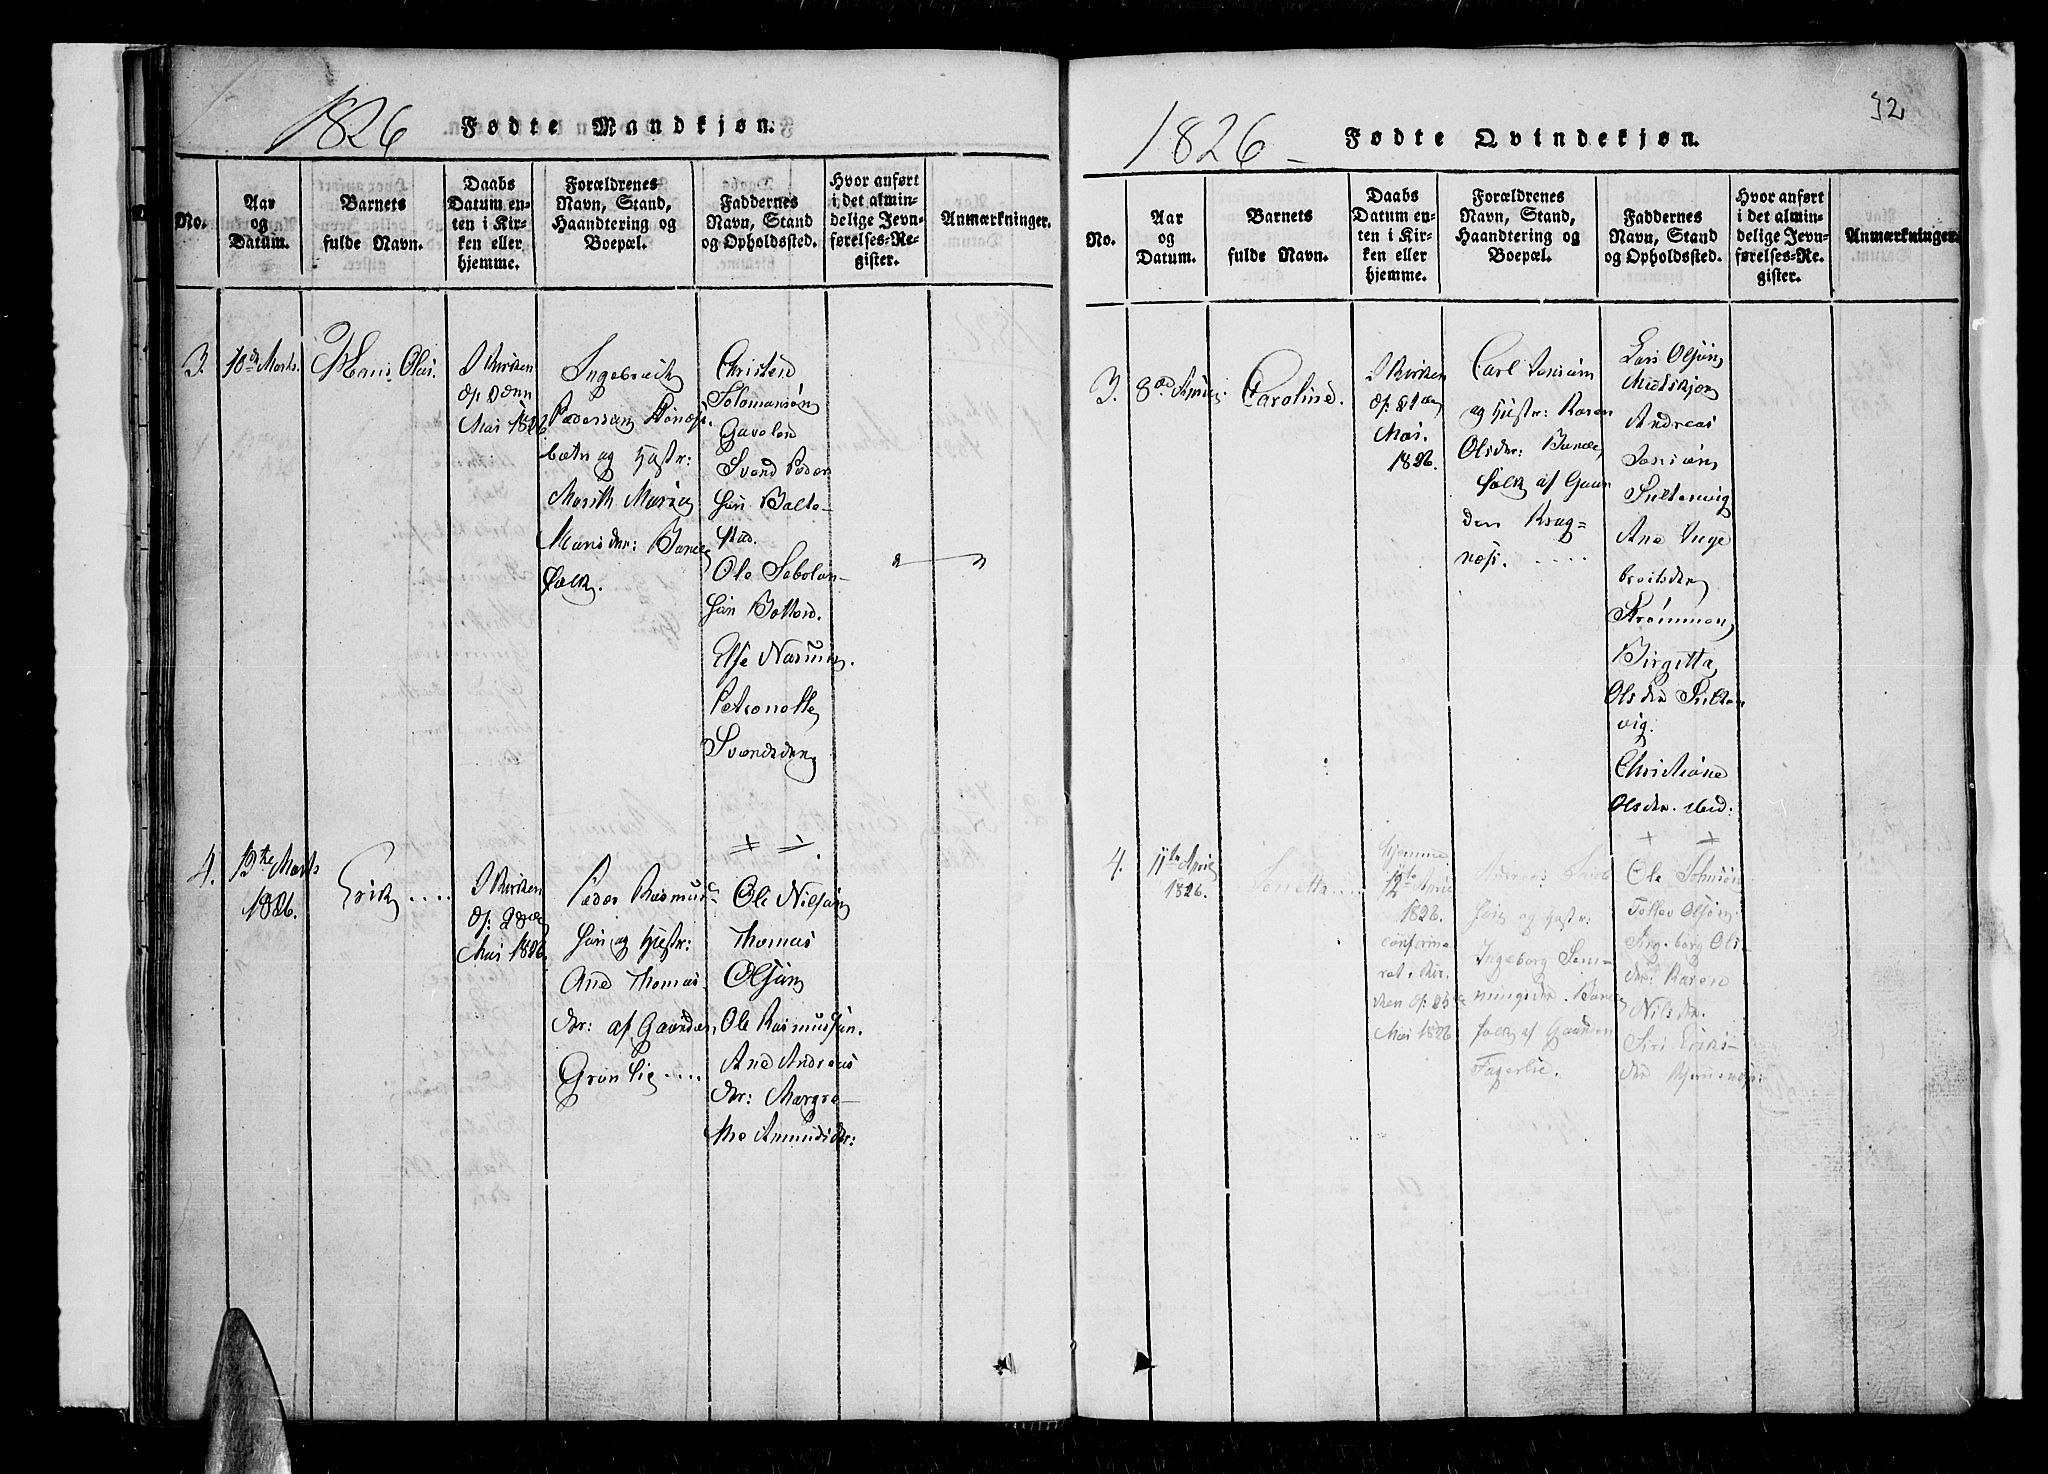 1826
Fødte Mandkjøn.
No.
Aar
og
Datum.
Barnets
fulde Navn.
Daabs
Datum en-
ten i Kir-
ken eller
hjemme.
Forældrenes
Navn, Stand,
Haandtering og
Boepæl.
Faddernes
Navn, Stand
og Opholdssted.
Hvor anført
i det almin-
delige Jevn-
førelses-Re-
gister.
Anmærkninger.
3.
10de Marts.
Hans Olai.
I Kirken
Mai 1826
Ingebrict
Pedersen
og Hustr:
Marith Maria
Mansdtr: Bonde
folk.
Christen
Solomonsøn
Svend Peder
søn Balte-
stad.
Ole
søn Botten.
Else
Petronelle
Svendsdtr
4.
13de Marts
1826.
Erik ....
I Kirken
Mai 1826.
Peder Rasmus
søn og Hustr:
Ane Thomas
dtr: af Gaarden
Grønlie ....
Ole Nilsøn
Thomas
Olsøn
Ole Rasmussøn.
Ane Andreas
dtr: Margre-
the Amundsdtr:
1826
Fødte Qvindekjøn.
32
No.
Aar
og
Datum.
Barnets
fulde Navn.
Daabs
Datum en-
ten i Kir-
ken eller
hjemme.
Forældrenes
Navn, Stand,
Haandtering og
Boepæl.
Faddernes
Navn, Stand
og Opholdssted.
Hvor anført
i det almin-
delige Jevn-
førelses-Re-
gister.
Anmærkninger.
3.
8de April
Caroline.
I Kirken
Mai.
1826.
Carl Jensøn
og Hustr: Karen
Olsdtr: Bonde
folk af Gaar
den Krog-
næs. ....
Lars Olsøn
Andreas
Jensøn
Ane Inge
breitsdtr
Strømmen
Birgitta
Olsdtr
vig.
Christiane
Olsdtr.
4.
11te April
1826.
hjemme
12te April
1826.
confirme
ret i Kir
ken
Mai 1826
søn og Hustr:
Ingeborg Sem-
mingsdtr. Bonde
folk af Gaarden
Fagerlie.
Ole Johnsøn
Tollev Olsøn
Ingeborg Ols-
dtr: Karen
Nilsdtr.
Siri Eriks-
dtr